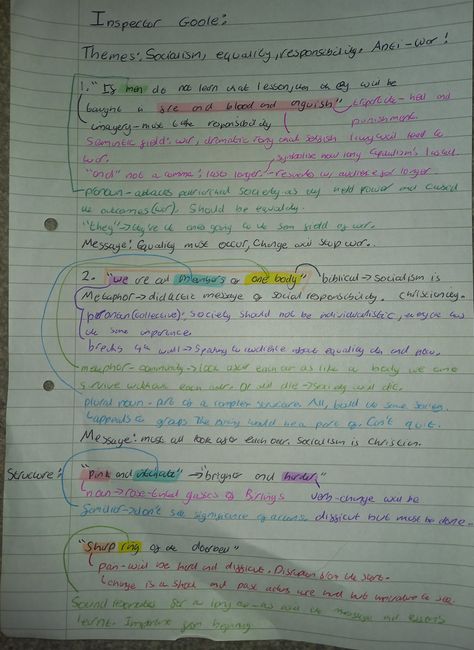 Inspector Goole:
Themes: Socialism, equality, responsibility. Anti-war!
1. "If men do not learn that lesson, then they will be
taught in fire and blood and anguish" hell and
imagery - must take responsibility punishment.
Semantic field: war, dramatic irony and selfish will lead to
war. symbolise how long capitalism's lasted
"and" not a comma: lasts longer. resonates w/ audience for longer
pronoun - attacks patriarchal society as they held power and caused
the outcomes (war). Should be equality.
"they" → the semantic field of war.
Message: Equality must occur, change will stop war.
2. "We are all members of one body" biblical → socialism is
Metaphor → didactic message of social responsibility. Christianity.
pronoun (collective): society should not be individualistic, everyone has
the same importance
breaks 4th wall → speaking to audience about equality then and now.
metaphor - community → look after each other as like a body we can't
survive without each other. Or all die → society will die.
plural noun - part of a complex structure. All, build the same society.
appeals to groups they would be a part of. Can't quit.
Message: must all look after each other. Socialism is Christian.
Structure: "Pink and intimate" → "brighter and harder"
noun → rose-tinted glasses of Birlings verb - change will be
familiar → don't see significance of actions difficult but must be done.
"Sharp ring of the doorbell"
pan - will be hard and difficult. Disruption from the start.
change is a shock and past actions are hard but imperative to see.
Sound resonates for a long time as will the message and effects
learnt. Imperative from beginning.